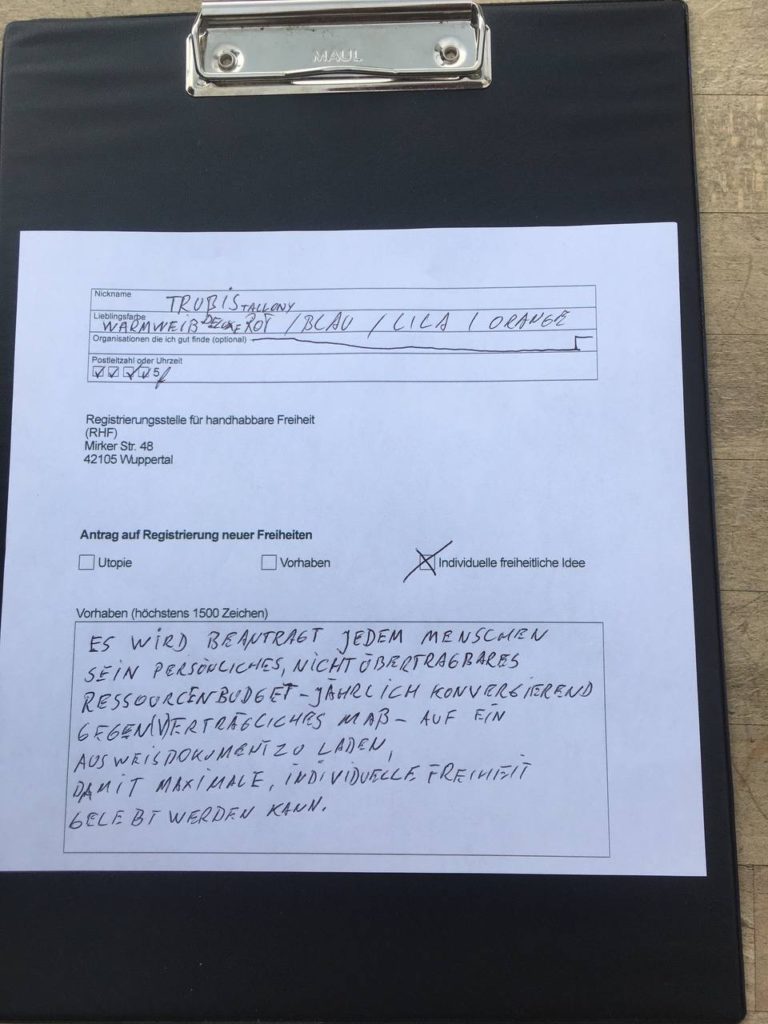 MAUL
Nickname TRUBISTALLONY
Lieblingsfarbe WARMWEIß DECKE ROT / BLAU / LILA / ORANGE
Organisationen die ich gut finde (optional)
Postleitzahl oder Uhrzeit
5
Registrierungsstelle für handhabbare Freiheit
(RHF)
Mirker Str. 48
42105 Wuppertal
Antrag auf Registrierung neuer Freiheiten
Utopie Vorhaben Individuelle freiheitliche Idee
Vorhaben (höchstens 1500 Zeichen)
ES WIRD BEANTRAGT JEDEM MENSCHEN
SEIN PERSÖNLICHES, NICHT ÜBERTRAGBARES
RESSOURCENBUDGET - JÄHRLICH KONVERGIEREND
GEGEN VERTRÄGLICHES MAß - AUF EIN
AUSWEISDOKUMENT ZU LADEN,
DAMIT MAXIMALE, INDIVIDUELLE FREIHEIT
GELEBT WERDEN KANN.